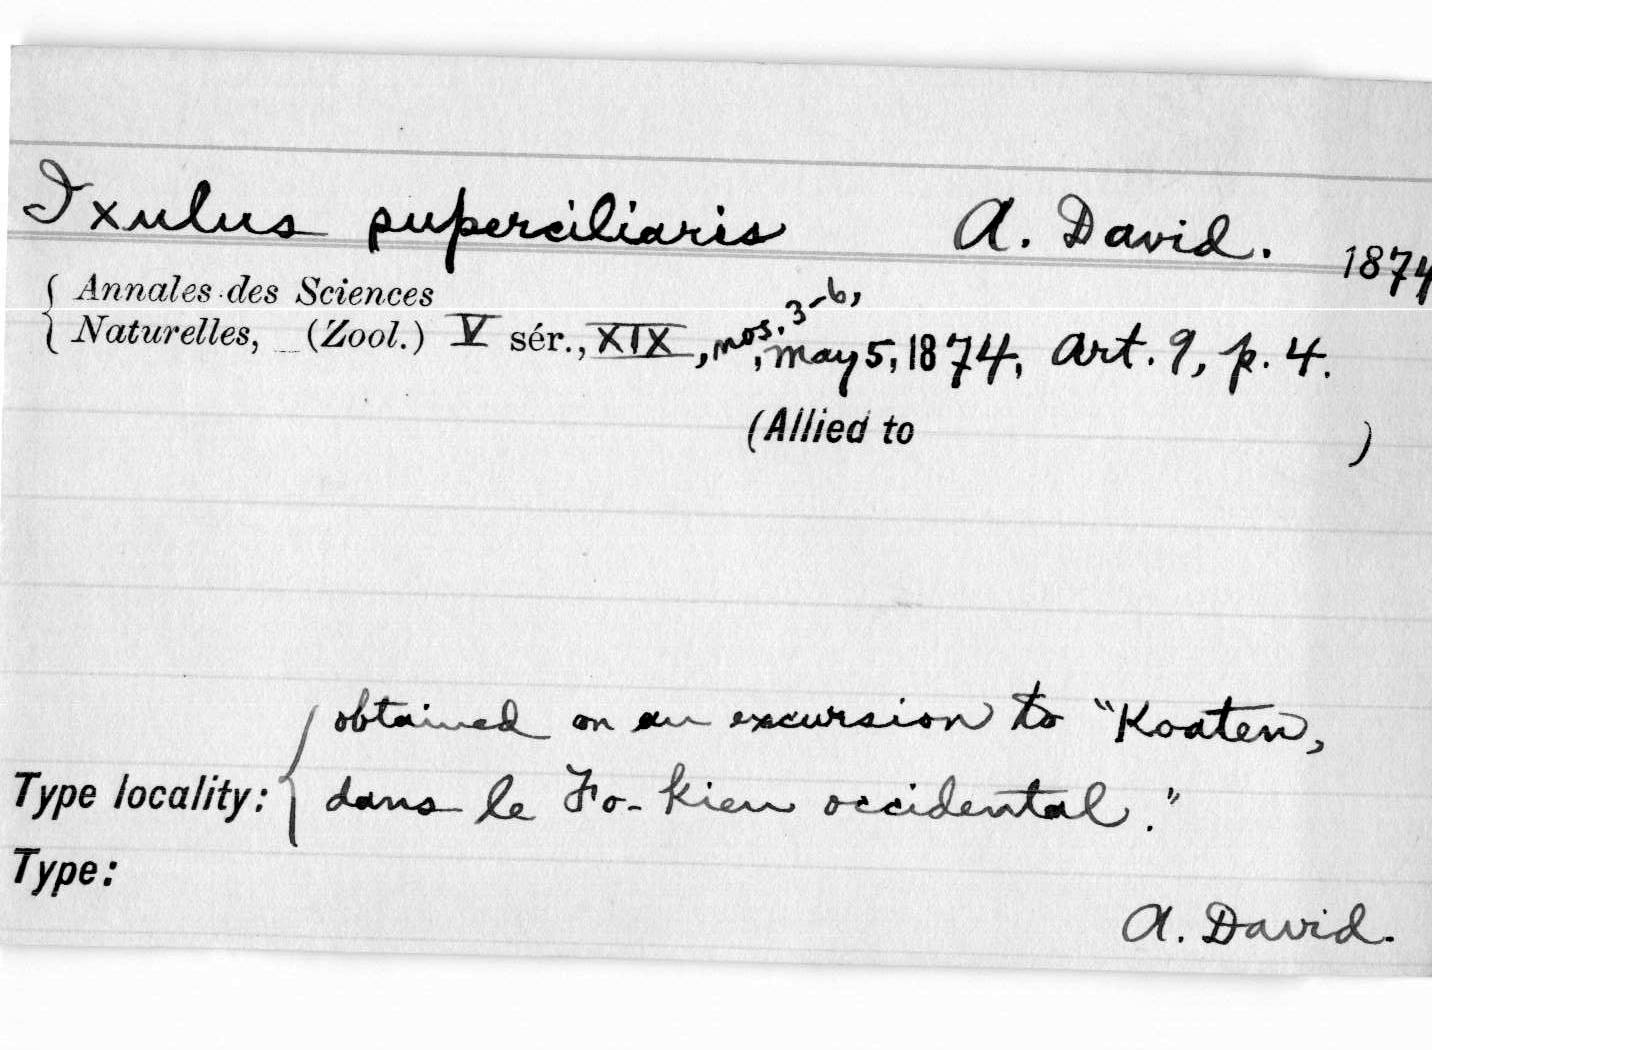 Ixulus superciliaris A. David. 1874
Annales des Sciences
Naturelles, (Zool.) V sér., XIX, nos. 3-6, May 5, 1874, Art. 9, p. 4.
(Allied to )
obtained on an excursion to "Koaten,
Type locality: dans le Fo-kien occidental."
Type:
A. David.